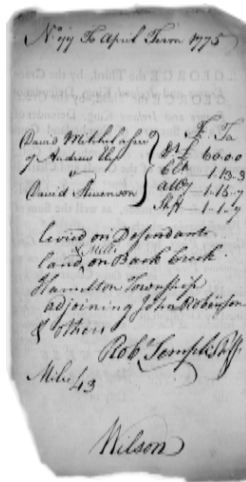 No 77 To April Term 1775
Fi. Fa
David Mitchel assee
of Andrew
v
David Stevenson
Dt £60.0.0
Clk 1.13.3
Atty 1.13.9
Shff 1.1.9
Levied on Defendants
land & Mills on Back Creek
Hamilton Township
adjoining John Robinson
& others
Robt Semple Shff
Miles 43
Wilson